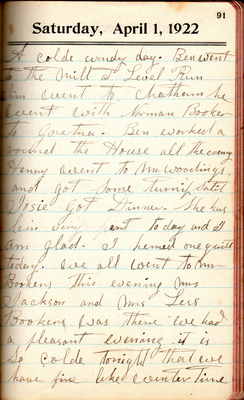 91
Saturday, April 1, 1922
A colde windy day. Ben went
to the mill at Level Run
Jim went to Chatham he
went with Norman Booker
to Gretna. Ben worked a
round the House all the evening
Henny went to Mr Woodings
and got some turnip salet
Josie got Dinner. She has
bein very pert today and I
am glad. I hemed one quilt
today. we all went to Mr
Bookers this evening Mrs
Jackson and Mrs
Bookers was there we had
a pleasant evening it is
so colde tonight that we
have fire like winter time